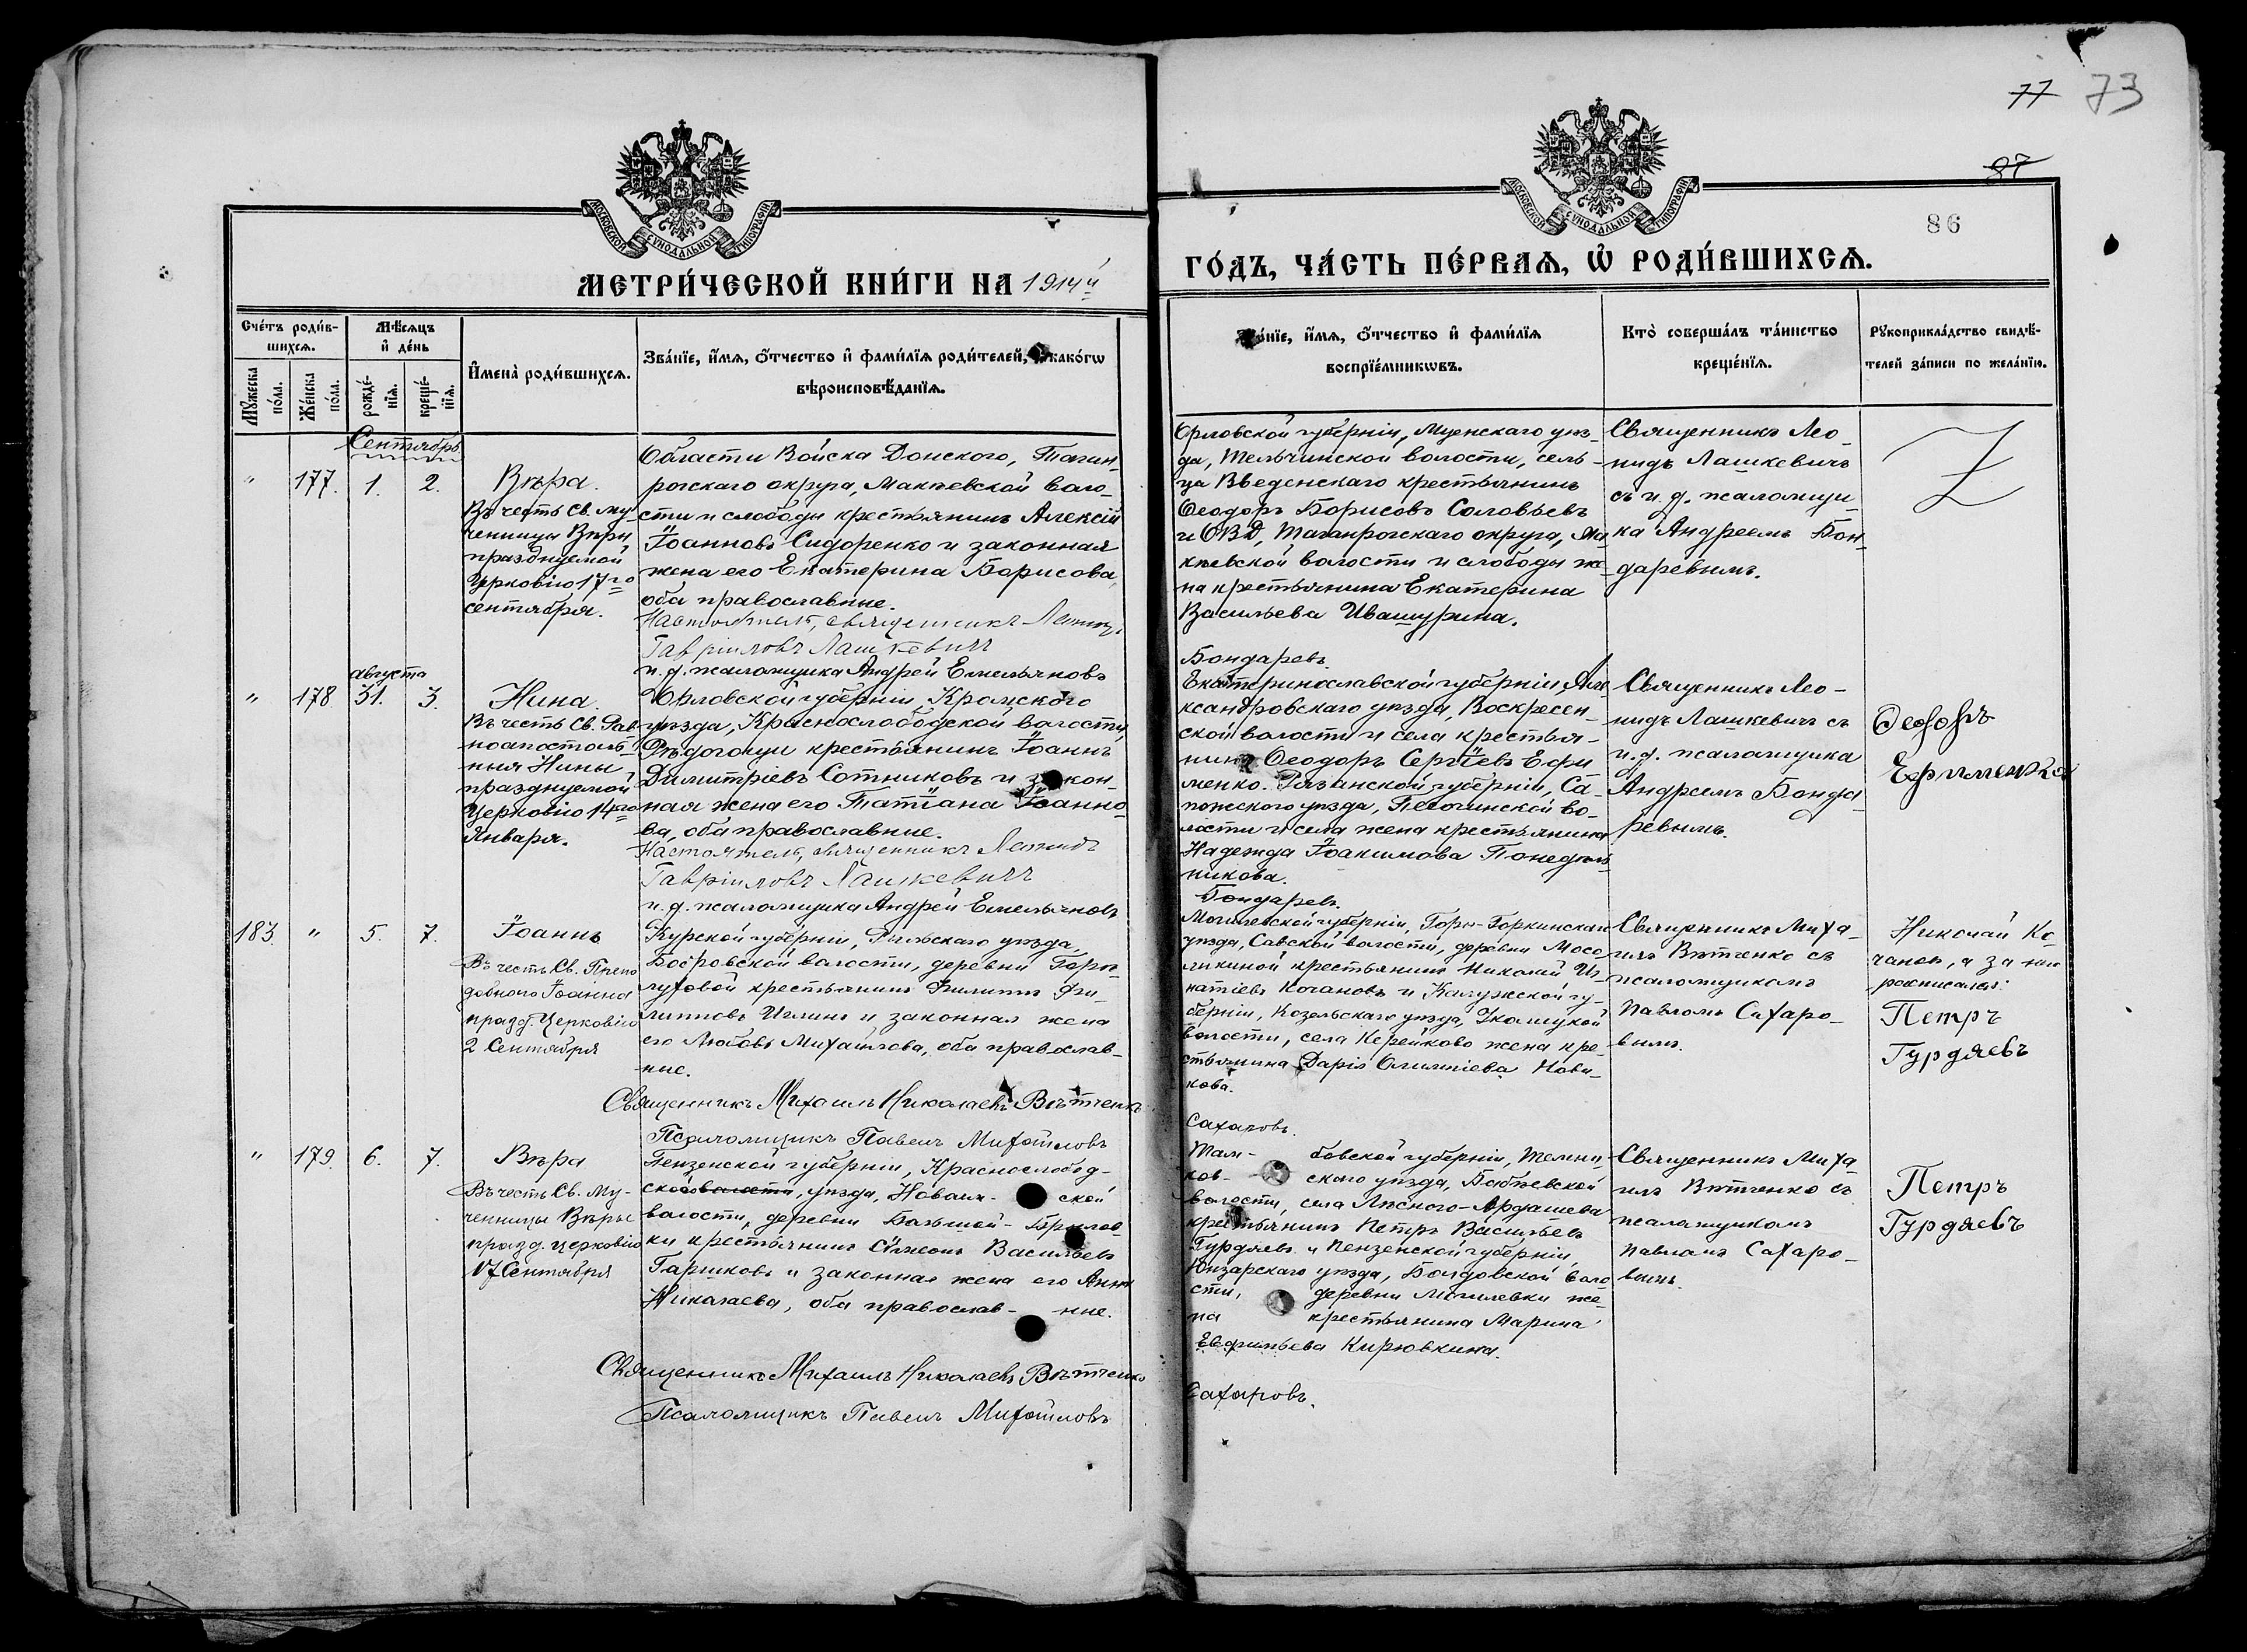 77 73
87
86
МОСКОВСКОЙ СѴНОДАЛЬНОЙ ТИПОГРАФІИ
МОСКОВСКОЙ СѴНОДАЛЬНОЙ ТИПОГРАФІИ
МЕТРИ́ЧЕСКОЙ КНИ́ГИ НА 1914й
ГО́ДЪ, ЧА́СТЬ ПЕ́РВАѦ, Ѽ РОДИ́ВШИХСѦ.
Сче́тъ роди́в-
шихсѧ.
Мѣ́сѧцъ
и҆ де́нь
Мꙋ́жеска
по́ла.
Же́нска
по́ла.
рожде́-
нїѧ.
креще́-
нїѧ.
И҆мена̀ роди́вшихсѧ.
Зва́нїе, и҆́мѧ, ѻ҆́тчество и҆ фами́лїѧ роди́телей, како́гѡ
вѣроисповѣ́данїѧ.
и҆́мѧ, ѻ҆́тчество и҆ фами́лїѧ
воспрїе́мникѡвъ.
Кто̀ соверша́лъ та́инство
креще́нїѧ.
Рꙋкоприкла́дство свидѣ́-
телей за́писи по жела́нїю.
Сентябрь
" 177. 1. 2.
Вѣра.
Въ честь Св. му-
ченицы Вѣры
празднуемой
Церковію 17го
сентября.
Области Войска Донского, Таган-
рогскаго округа, Макѣевской воло-
сти и слободы крестьянинъ Алексій
Іоанновъ Сидоренко и законная
жена его Екатерина Борисова,
оба православные.
Настоятель, священникъ Леонид
Гавріиловъ Лашкевичъ
и. д. псаломщика Андрей Емельяновъ
Орловской губерніи, Мценскаго уѣз-
да, Тельчинской волости, сель-
ца Введенскаго крестьянинъ
Ѳеодоръ Борисовъ Соловьевъ
и ОВД, Таганрогскаго округа, Ма-
кѣевской волости и слободы же-
на крестьянина Екатерина
Васильева Ивашурина.
Бондаревъ.
Священникъ Лео-
нидъ Лашкевичъ
съ и. д. псаломщи-
ка Андреемъ Бон-
даревымъ.
августа
" 178 31. 3.
Нина.
Въ честь Св. Рав-
ноапостоль-
ныя Нины
празднуемой
Церковію 14го
Января.
Орловской губерніи, Кромскаго
уѣзда, Краснослободской волости,
крестьянинъ Іоаннъ
Димитріевъ Сотниковъ и закон-
ная жена его Татіана Іоанно-
ва, оба православные.
Настоятель, священникъ Леонидъ
Гавріиловъ Лашкевичъ
и. д. псаломщика Андрей Емельяновъ
Екатеринославской губерніи Але-
ксандровскаго уѣзда, Воскресен-
ской волости и села крестья-
нинъ Ѳеодоръ Сергіевъ Ефи-
менко. Рязанской губерніи, Са-
пожского уѣзда, Песочинской во-
лости и села жена крестьянина
Надежда Іоакимова Понедѣль-
никова.
Бондаревъ.
Священникъ Лео-
нидъ Лашкевичъ съ
и. д. псаломщика
Андреемъ Бонда-
ревымъ.
Ѳеодоръ
Ефименко
183. " 5. 7.
Іоаннъ
Въ честь Св. Препо
добнаго Іоанна
празд. Церковію
2 Сентября
Курской губерніи, Рыльскаго уѣзда,
Бобровской волости, деревни
крестьянинъ Филиппъ Фи-
липповъ и законная жена
его Любовь Михайлова, оба православ-
ные.
Священникъ Михаилъ Николаевъ Вѣтченко
Псаломщикъ Павелъ Михайловъ
Могилевской губерніи, Горы-Горкинскаго
уѣзда, Савской волости, деревни Мосо-
ликиной крестьянинъ Николай Иг-
натіевъ Кочановъ и Калужской гу-
берніи, Козельскаго уѣзда,
волости, села Керейково жена кре-
стьянина Дарія Олимпіева Нови-
кова.
Сахаровъ.
Священникъ Миха-
илъ Вѣтченко съ
псаломщикомъ
Павломъ Сахаро-
вымъ.
Николай Ко-
чанов, а за него
росписался:
Петръ
Гурдяевъ
" 179. 6. 7.
Вѣра
Въ честь Св. Му-
ченицы Вѣры
празд. церковію
17 Сентября
Пензенской губерніи, Краснослобод-
ской волости, уѣзда, ской
волости, деревни Большой-
крестьянинъ Сѵмеонъ Васильевъ
Гаршковъ и законная жена его Анна
Николаева, оба православ- ные.
Священникъ Михаилъ Николаевъ Вѣтченко
Псаломщикъ Павелъ Михайловъ
Там- бовской губерніи, Темни-
ков- скаго уѣзда, Бабѣевской
волости, села Лѣсного-Ардашева
крестьянинъ Петръ Васильевъ
Гурдяевъ и Пензенской губерніи,
Инзарскаго уѣзда, Болдовской воло
сти, деревни Могилевки же-
на крестьянина Марина
Евфимьева Кирювкина.
Сахаровъ.
Священникъ Миха
илъ Вѣтченко съ
псаломщикомъ
Павломъ Сахаро-
вымъ.
Петръ
Гурдяевъ